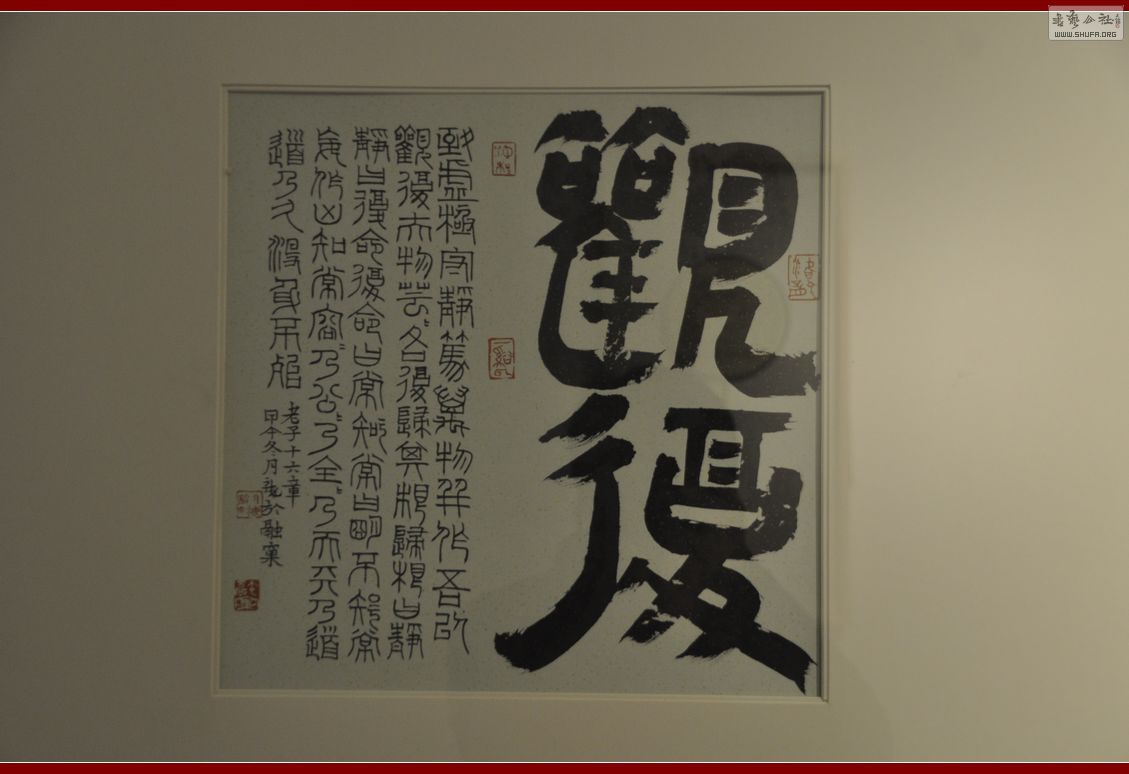 觀復
致虛極守靜篤萬物並作吾以
觀復夫物芸〻各復歸其根歸根曰靜
靜曰復命復命曰常知常曰明不知常
妄作凶知常容乃公〻乃全〻乃天天乃道
道乃久沒身不殆
老子十六章
甲午冬月於融窠
書藝公社
WWW.SHUFA.ORG